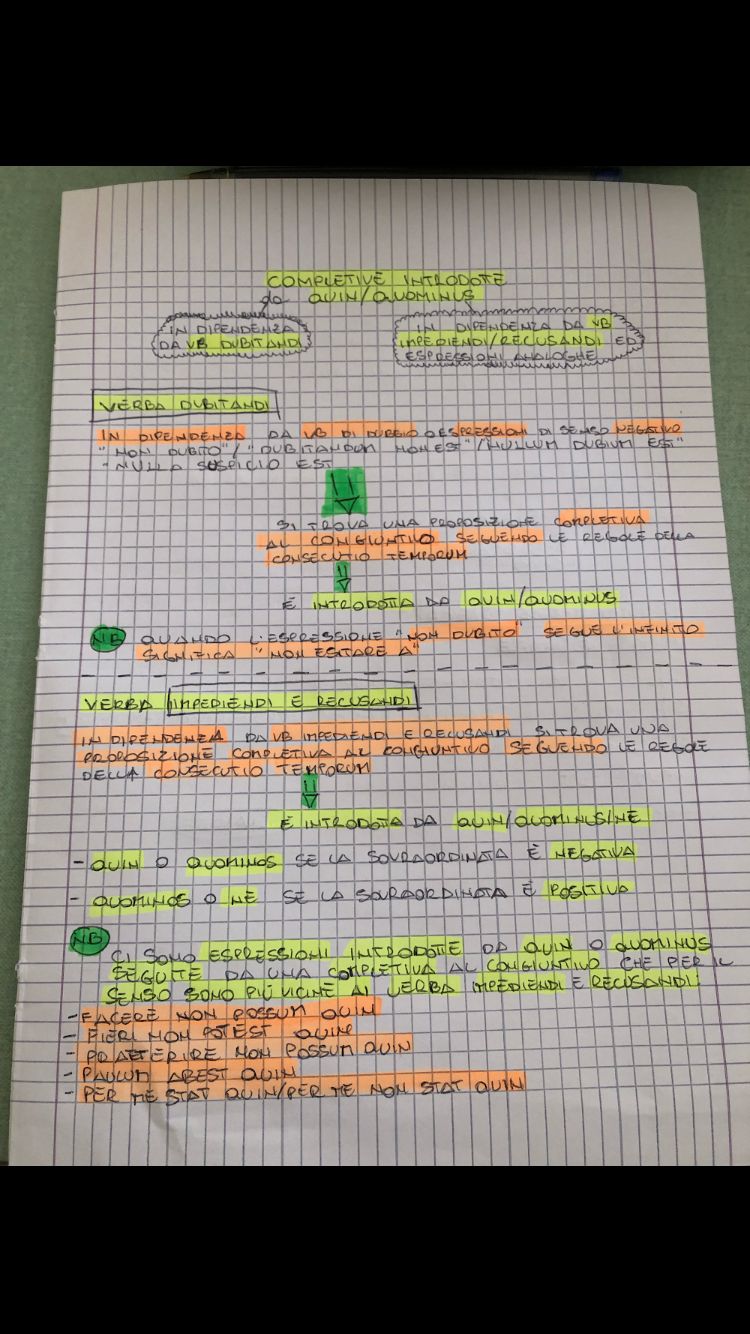 COMPLETIVE INTRODOTE
da QUIN/QUOMINUS
IN DIPENDENZA
DA VB DUBITANDI
IN DIPENDENZA DA VB
IMPEDIENDI/RECUSANDI ED
ESPRESSIONI ANALOGHE
VERBA DUBITANDI
IN DIPENDENZA DA VB DI DUBBIO O ESPRESSIONI DI SENSO NEGATIVO
"NON DUBITO"/"DUBITANDUM NON EST"/"NULLUM DUBIUM EST"
- NULLA SUSPICIO EST
SI TROVA UNA PROPOSIZIONE COMPLETIVA
AL CONGIUNTIVO SEGUENDO LE REGOLE DELLA
CONSECUTIO TEMPORUM
È INTRODOTTA DA QUIN/QUOMINUS
NB QUANDO L'ESPRESSIONE "NON DUBITO" SEGUE L'INFINITO
SIGNIFICA "NON ESITARE A"
VERBA IMPEDIENDI E RECUSANDI
IN DIPENDENZA DA VB IMPEDIENDI E RECUSANDI SI TROVA UNA
PROPOSIZIONE COMPLETIVA AL CONGIUNTIVO SEGUENDO LE REGOLE
DELLA CONSECUTIO TEMPORUM
È INTRODOTA DA QUIN/QUOMINUS/NE
- QUIN O QUOMINUS SE LA SOVRAORDINATA È NEGATIVA
- QUOMINUS O NE SE LA SOVRAORDINATA È POSITIVA
NB
CI SONO ESPRESSIONI INTRODOTTE DA QUIN O QUOMINUS
SEGUITE DA UNA COMPLETIVA AL CONGIUNTIVO CHE PER IL
SENSO SONO PIÙ VICINE AI VERBA IMPEDIENDI E RECUSANDI:
- FACERE NON POSSUM QUIN
- FIERI NON POTEST QUIN
- PRAETERIRE NON POSSUM QUIN
- PAULUM ABEST QUIN
- PER ME STAT QUIN/PER ME NON STAT QUIN